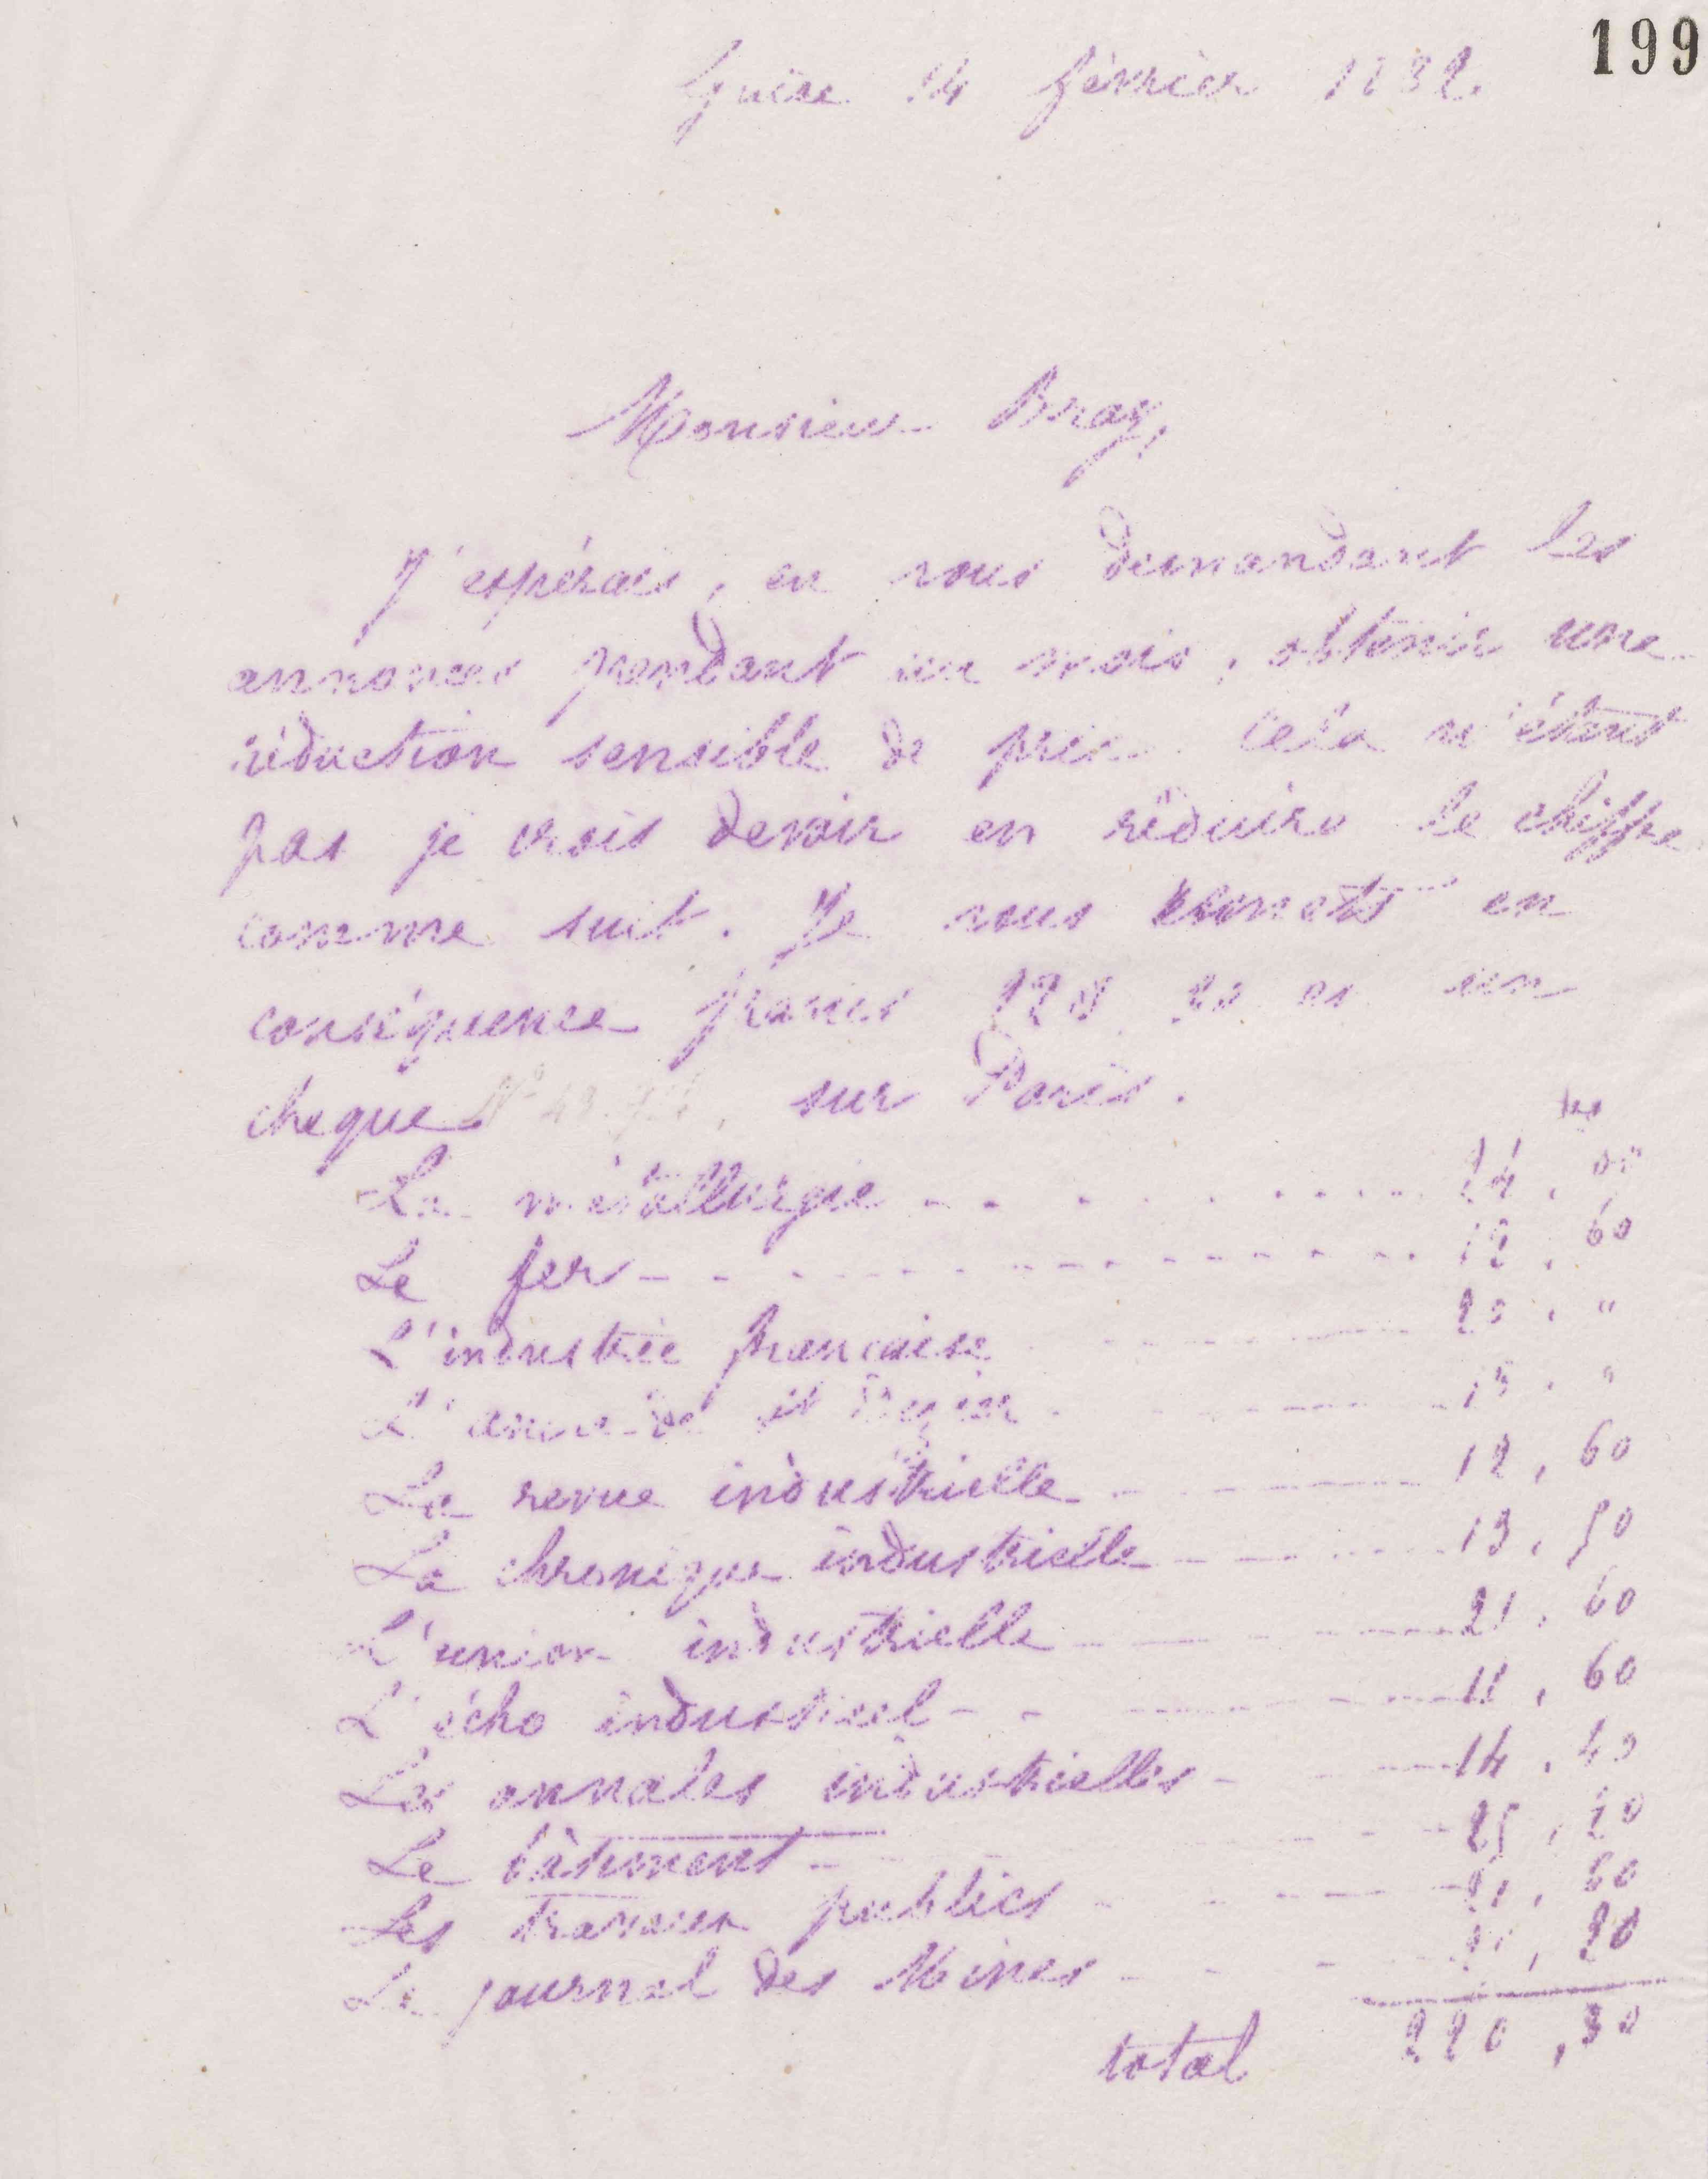 199
Guise 14 février 1882
Monsieur Bray,
J'espérais, en vous demandant les
annonces pendant un mois, obtenir une
réduction sensible de prix. Cela n'étant
pas je crois devoir en réduire le chiffre
comme suit. Je vous remets en
conséquence francs en un
cheque N° sur Paris.
La métallurgie 24,
Le fer 12,60
L'industrie française "
L' et "
La revue industrielle 12,60
La chronique industrielle 13,50
L'union industrielle 21,60
L'écho industriel 11,60
Les annales industrielles 14,40
Le bâtiment 25,20
Les travaux publics 21,60
Le journal des Mines 20
total 220,30